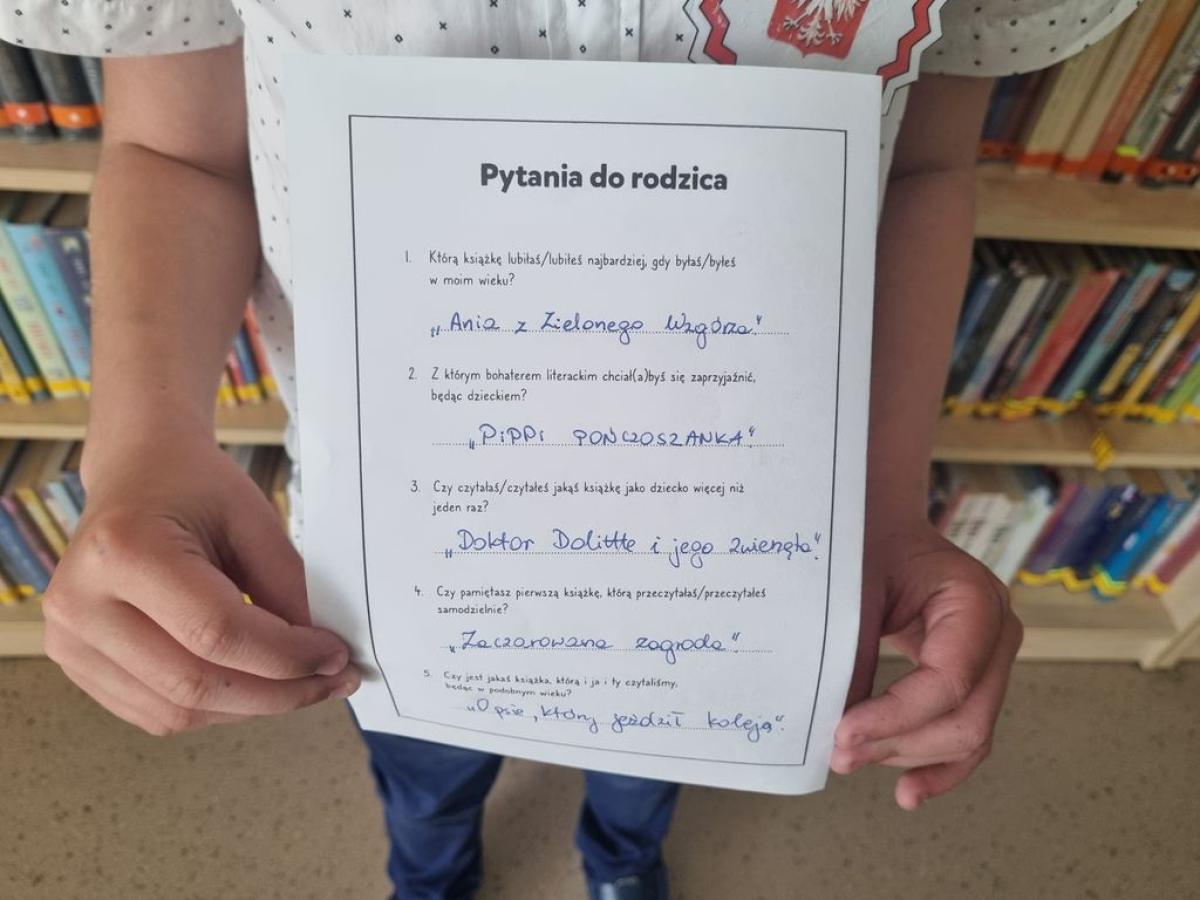 Pytania do rodzica
1. Którą książkę lubiłaś/lubiłeś najbardziej, gdy byłaś/byłeś
w moim wieku?
„Ania z Zielonego Wzgórza"
2. Z którym bohaterem literackim chciał(a)byś się zaprzyjaźnić,
będąc dzieckiem?
„PiPPi POŃCZOSZANKA"
3. Czy czytałaś/czytałeś jakąś książkę jako dziecko więcej niż
jeden raz?
„Doktor Dolittle i jego zwierzęta".
4. Czy pamiętasz pierwszą książkę, którą przeczytałaś/przeczytałeś
samodzielnie?
„Zaczarowana zagroda".
5. Czy jest jakaś książka, którą i ja i ty czytaliśmy,
będąc w podobnym wieku?
„O psie, który jeździł koleją".